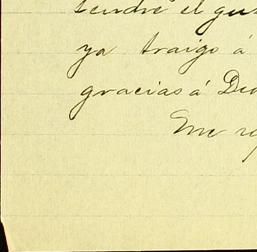 tendré el gu
ya traigo á
gracias á Dio